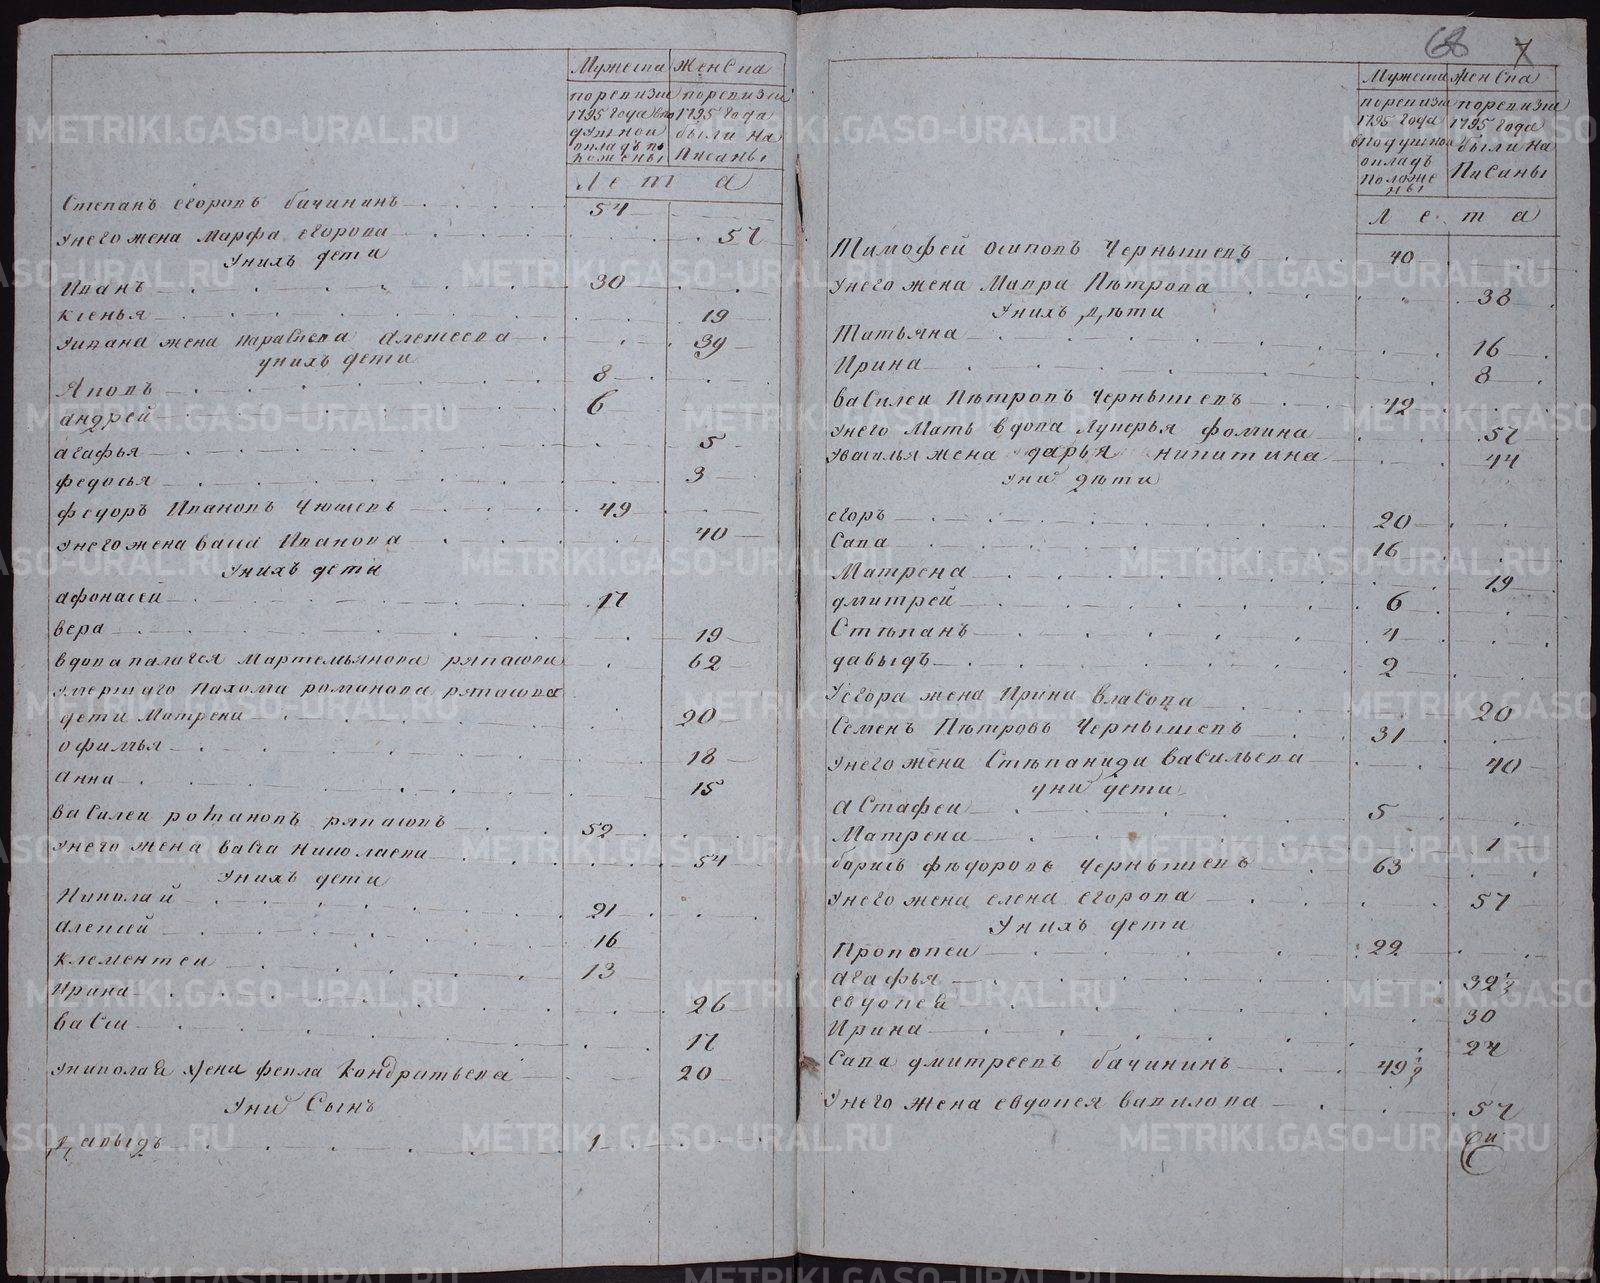 Мужеска
Женска
поревизи
1795 года
поревизи
1795 года
были на
писаны
Лета
Степанъ егоровъ бачининъ 54
Унего жена Марфа егорова 57
Унихъ дети
Иванъ 30
ксенья 19
Уивана жена Парасковя
унихъ дети
Яковъ 8
андрей 6
агафья 5
федосья 3
федоръ Ивановъ Чюшевъ 49
Унего жена васса Иванова 40
Унихъ дети
афонасей 17
вера 19
вдова палагея Мартемьянова 62
Умершаго Пахома романова
дети Матрена 20
офимья 18
анна 15
василеи романовъ 52
Унего жена васса николаева 54
Унихъ дети
Николай 21
алексей 16
клементеи 13
Ирина 26
васса 17
Униколая жена фекла Кондратьева 20
Уни сынъ
Давыдъ 1
68 7
Мужеска
Женска
поревизи
1795 года
вподушнои
окладъ
положе
ны
поревизи
1795 года
были на
Писаны
Лета
Тимофей осиповъ Чернышевъ 40
Унего жена Мавра Пѣтрова 38
Унихъ дѣти
Татьяна 16
Ирина 8
василеи Пѣтровъ Чернышевъ 42
Унего Мать вдова Лукерья фомина 57
Увасилья жена дарья никитина 44
Уни дѣти
егоръ 20
Сава 16
Матрена 19
дмитрей 6
Стѣпанъ 4
давыдъ 2
Уегора жена Ирина власова 20
Семенъ Пѣтровъ Чернышевъ 31
Унего жена Стѣпанида васильева 40
уни дети
астафеи 5
Матрена 1
борисъ фѣдоровъ Чернышевъ 63
Унего жена елена егорова 57
Унихъ дети
Прокопеи 22
агафья 32
евдокея 30
Ирина 24
Сава дмитреевъ бачининъ 49
Унего жена евдокея вавилова 57